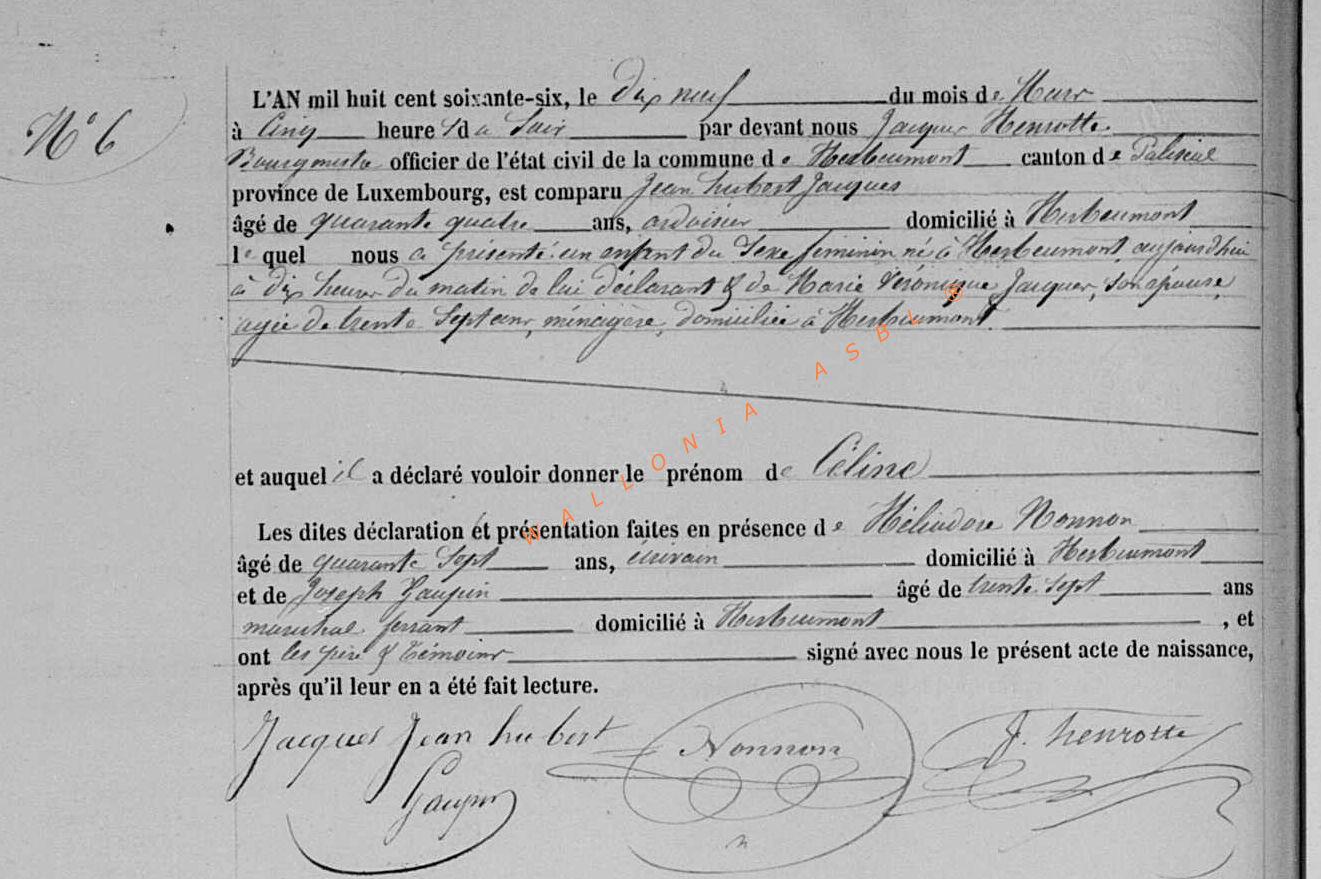 N° 6
L'AN mil huit cent soixante-six, le dix neuf du mois de Mars
à Cinq heures du Soir par devant nous Jacques Henrotte
Bourgmestre officier de l'état civil de la commune de Herbeumont canton de Paliseul
province de Luxembourg, est comparu Jean hubert Jacques
âgé de quarante quatre ans, ardoisier domicilié à Herbeumont
lequel nous a présenté un enfant du Sexe féminin né à Herbeumont, aujourdhui
à dix heures du matin de lui déclarant & de Marie Véronique Jacques, son épouse,
agée de trente Sept ans, ménagère, domiciliée à Herbeumont.
WALLONIA ASBL ®
et auquel il a déclaré vouloir donner le prénom de Céline
Les dites déclaration et présentation faites en présence de Héliodore Nonnon
âgé de quarante Sept ans, écrivain domicilié à Herbeumont
et de Joseph Gaupin âgé de trente Sept ans
maréchal ferrant domicilié à Herbeumont, et
ont les père & témoins signé avec nous le présent acte de naissance,
après qu'il leur en a été fait lecture.
Jacques Jean hubert Nonnon J. henrotte
Gaupin